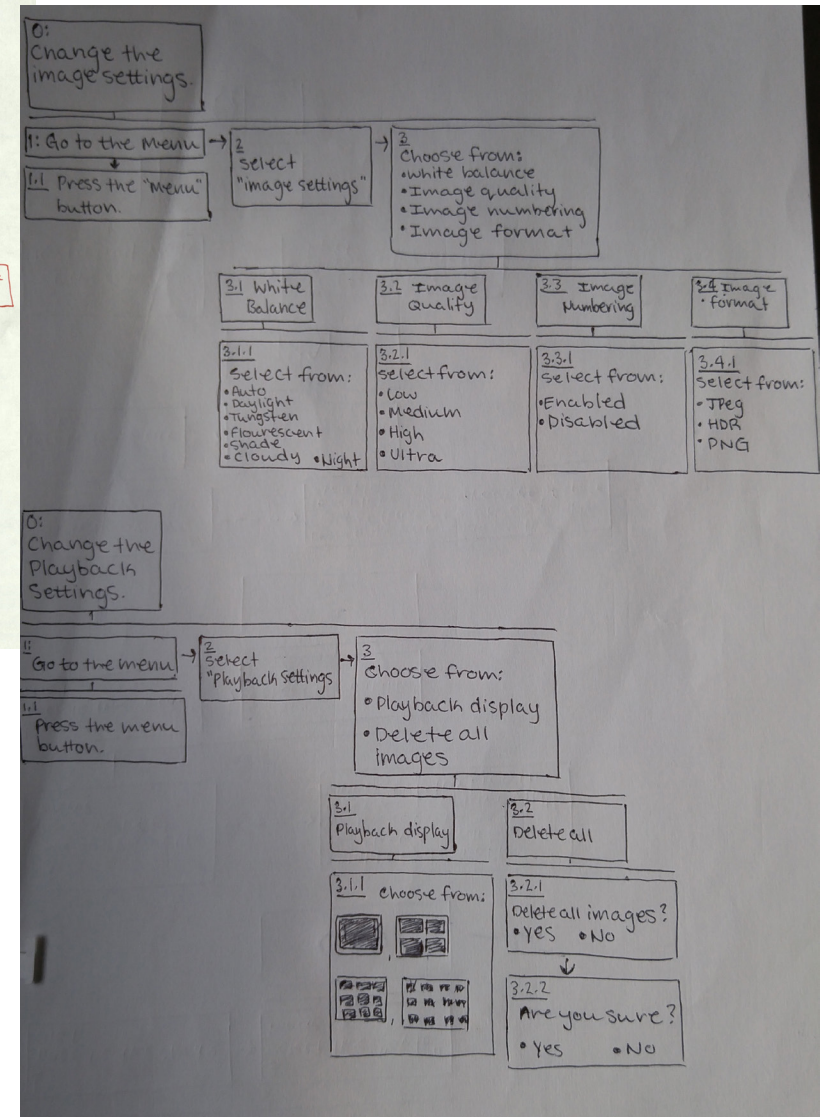 0:
Change the
image settings.
1: Go to the Menu
1.1 Press the "Menu"
button.
2
select
"image settings"
3
Choose from:
•white balance
•Image quality
•Image numbering
•Image format
3.1 White
Balance
3.2 Image
Quality
3.3 Image
Numbering
3.4 Image
• format
3.1.1
Select from:
•Auto
•Daylight
•Tungsten
•Flourescent
•Shade
•Cloudy •Night
3.2.1
Select from:
•Low
•Medium
•High
•Ultra
3.3.1
Select from:
•Enabled
•Disabled
3.4.1
Select from:
•JPeg
•HDR
•PNG
0:
Change the
Playback
Settings.
1:
Go to the menu
1.1
Press the menu
button.
2
Select
"Playback settings
3
Choose from:
•Playback display
•Delete all
images
3.1
Playback display
3.2
Delete all
3.1.1 Choose from:
3.2.1
Delete all images?
•Yes •No
3.2.2
Are you sure?
•Yes •No